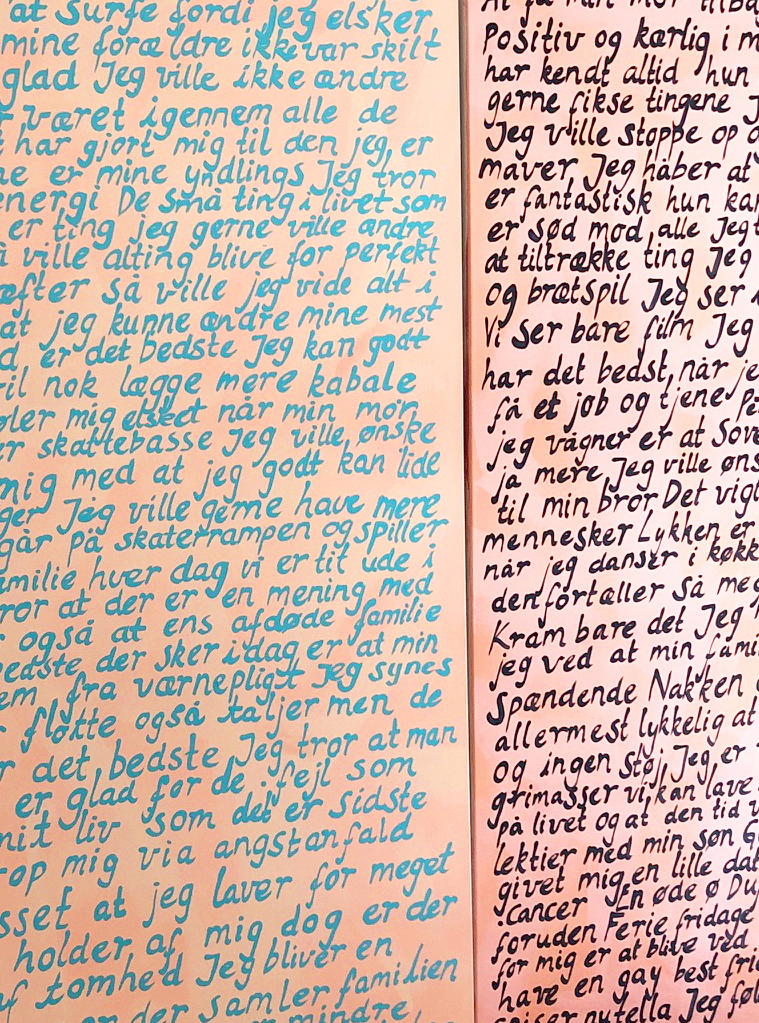 at Surfe fordi jeg elsker
mine forældre ikke var skilt
glad Jeg ville ikke ændre
været igennem alle de
har gjort mig til den jeg er
er mine yndlings Jeg tror
energi De små ting i livet som
er ting jeg gerne ville ændre
ville alting blive for perfekt
efter så ville jeg vide alt i
at jeg kunne ændre mine mest
er det bedste Jeg kan godt
nok lægge mere kabale
føler mig elsket når min mor
er skattebasse Jeg ville ønske
mig med at jeg godt kan lide
Jeg ville gerne have mere
går på skaterrampen og spiller
familie hver dag vi er tit ude i
tror at der er en mening med
også at ens afdøde familie
bedste der sker i dag er at min
fra værnepligt Jeg synes
flotte også taljer men de
det bedste Jeg tror at man
er glad for de fejl som
mit liv som det er sidste
op mig via angstanfald
at jeg laver for meget
holder af mig dog er der
af tomhed Jeg bliver en
er der samler familien
mindre
At få man mor
Positiv og kærlig i
har kendt altid hun
gerne fikse tingene
Jeg ville stoppe op
maver Jeg håber at
er fantastisk hun kan
er sød mod alle Jeg
at tiltrække ting Jeg
og brætspil Jeg ser
Vi ser bare film Jeg
har det bedst når
få et job og tjene
jeg vågner er at Sove
ja mere Jeg ville
til min bror Det
mennesker Lykken er
når jeg danser i
den fortæller så
Kram bare det Jeg
jeg ved at min
Spændende Nakken
allermest lykkelig at
og ingen støj Jeg er
grimasser vi kan lave
på livet og at den tid
lektier med min søn
givet mig en lille
cancer En øde ø
foruden Ferie fridage
for mig er at blive ved
have en gay best
spiser nutella Jeg